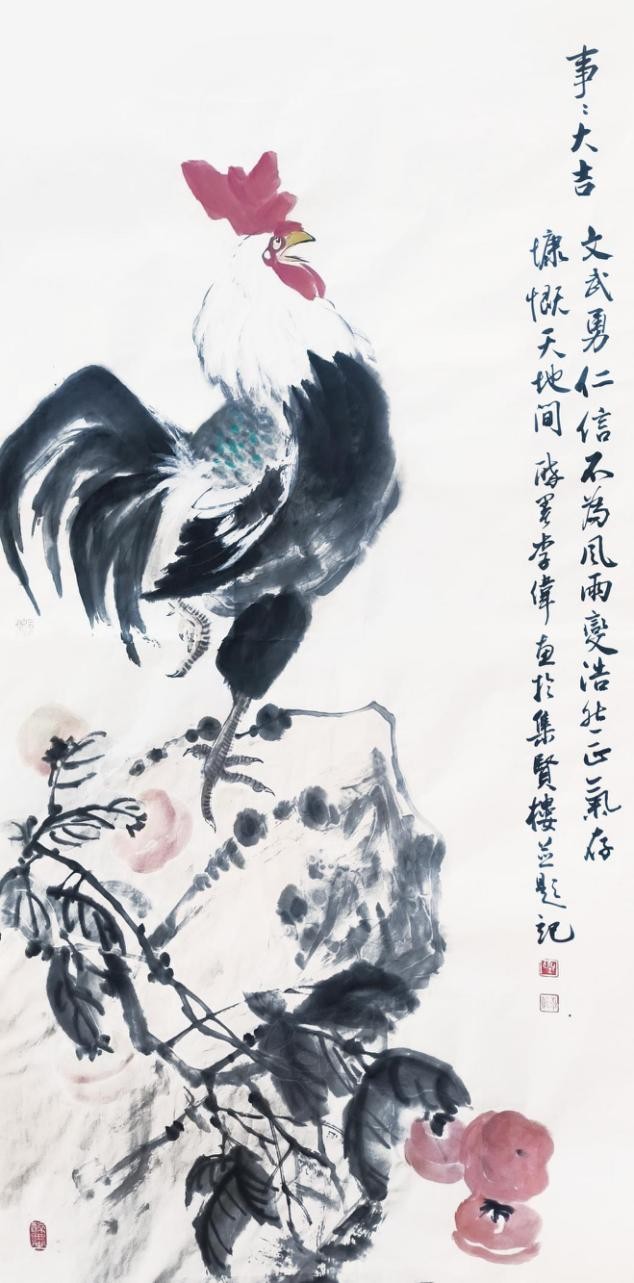 事:大吉
文武勇仁信不為风雨變浩然正氣存
慷慨天地间 李偉画於集賢樓並题記